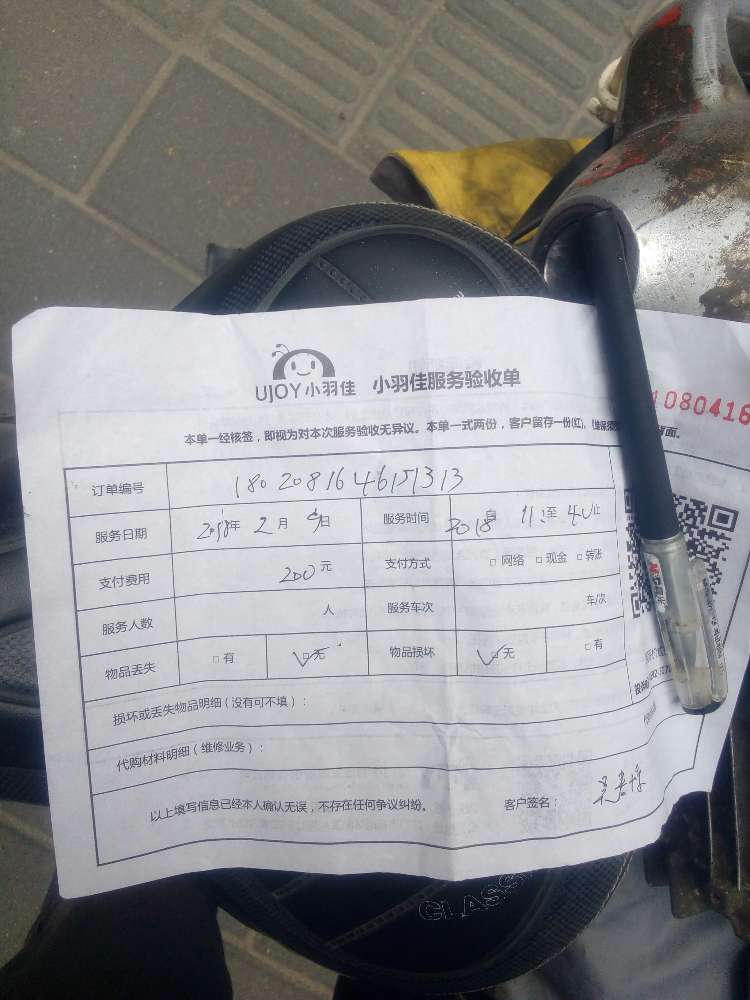 UJOY小羽佳 小羽佳服务验收单
1080416
本单一经核签，即视为对本次服务验收无异议。本单一式两份，客户留存一份(红)，
订单编号 1802081646151313
服务日期 2018年 2月 9日 服务时间 2018 自 11: 至 40止
支付费用 200元 支付方式 □网络 □现金 □转账
服务人数 人 服务车次 车/次
物品丢失 □有 □无 物品损坏 □无 □有
损坏或丢失物品明细（没有可不填）：
代购材料明细（维修业务）：
以上填写信息已经本人确认无误，不存在任何争议纠纷。 客户签名：
CLASS